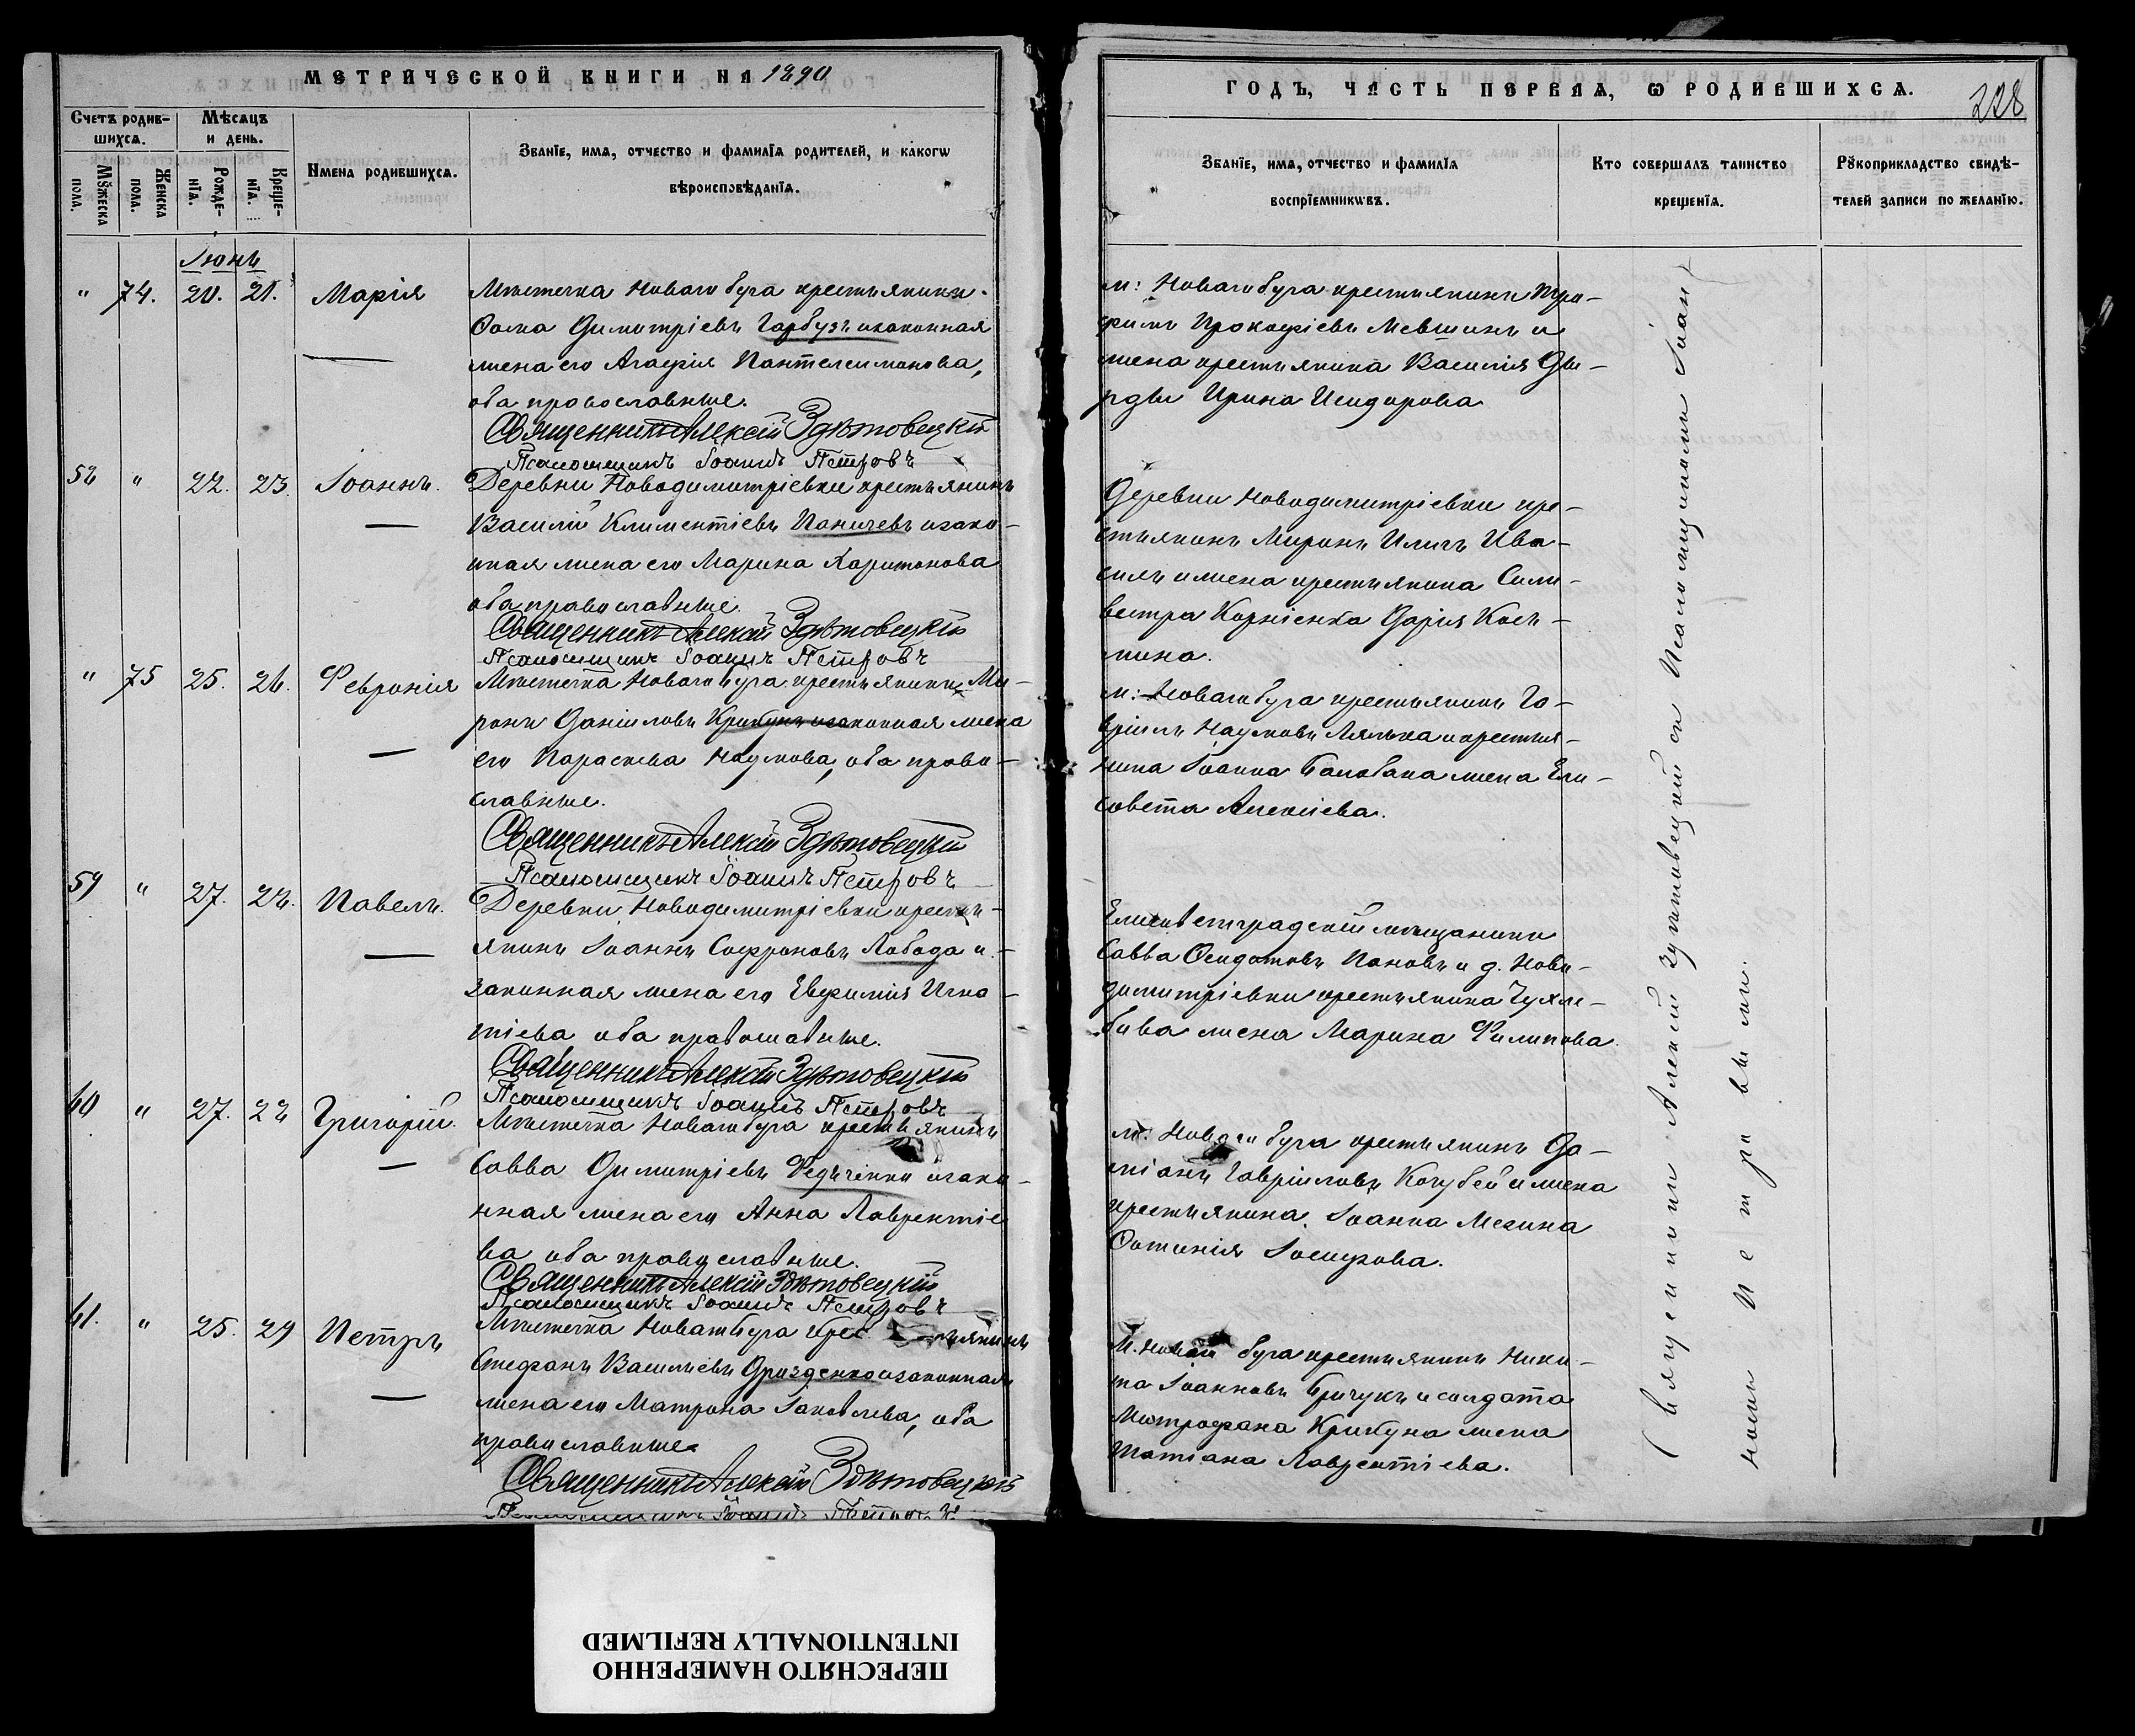 МЕТРИЧЕСКОЙ КНИГИ НА 1890
Счетъ родив-
шихсѧ.
Мѣсѧцъ
и день.
Имена родившихсѧ.
Званїе, имѧ, отчество и фамилїѧ родителей, и какогѡ
вѣроисповѣданїѧ.
Мꙋжеска
пола.
Женска
пола.
Рожде-
нїѧ.
Креще-
нїѧ.
Іюнь
" 74. 20. 21. Марія
Мѣстечка Новаго буга крестьянинъ
Ѳома Димитріевъ Гарбузъ и законная
жена его Агафія Пантелеимонова,
оба православные.
Священникъ Алексій Здѣтовецкій
Псаломщикъ Іоаннъ Петровъ
58 " 22. 23. Іоаннъ.
Деревни Новодимитріевки крестьянинъ
Василій Климентіевъ Паничевъ и зако-
нная жена его Марина Харитонова
оба православные.
Священникъ Алексій Здѣтовецкій
Псаломщикъ Іоаннъ Петровъ
" 75 25. 26. Февронія
Мѣстечка Новаго Буга крестьянинъ Ми-
ронъ Даніиловъ Крикунъ и законная жена
его Параскева Наумова, оба право-
славные.
Священникъ Алексій Здѣтовецкій
Псаломщикъ Іоаннъ Петровъ
59 " 27. 28. Павелъ.
Деревни Новодимитріевки кресть-
янинъ Іоаннъ Софроновъ Лобода и
законная жена его Евфимія Игна-
тіева оба православные.
Священникъ Алексій Здѣтовецкій
Псаломщикъ Іоаннъ Петровъ
60 " 27. 28 Григорій.
Мѣстечка Новаго буга крестьянинъ
Савва Димитріевъ Федченко и зако-
нная жена его Анна Лаврентіе
ва оба православные.
Священникъ Алексій Здѣтовецкій
Псаломщикъ Іоаннъ Петровъ
61. " 25. 29 Петръ
Мѣстечка Новаго Буга крестьянинъ
Стефанъ Василіевъ Дризденко и законная
жена его Матрона Іаковлева, оба
православные
Священникъ Алексій Здѣтовецкій
Псаломщикъ Іоаннъ Петровъ
ГОДЪ, ЧАСТЬ ПЕРВАѦ, Ѡ РОДИВШИХСѦ.
228
Званїе, имѧ, отчество и фамилїѧ
воспрїемникѡвъ.
Кто совершалъ таинство
крещенїѧ.
Рꙋкоприкладство свидѣ-
телей записи по желанїю.
м: Новаго буга крестьянинъ Тро-
фимъ Прокофіевъ Мевшинъ и
жена крестьянина Василія
Ирина Исидорова
Деревни Новодимитріевки кре-
стьянинъ Миронъ Иличъ Ива-
и жена крестьянина Сили-
вестра Корніенка Дарія Кось-
мина.
м: Новаго буга крестьянинъ Га-
вріилъ Наумовъ Лялька и крестья-
нина Іоанна Балабана жена Ели-
совета Алексіева.
Елисаветградскій мѣщанинъ
Савва Ѳедотовъ Пановъ и д. Ново-
димитріевки крестьянина Чухле-
бова жена Марина Филипова.
м: Новаго буга крестьянинъ Да-
міанъ Гавріиловъ Кочубей и жена
крестьянина Іоанна Мезина
Фотинія Іосифова.
М. Новаго буга крестьянинъ Ники-
та Іоанновъ Бричукъ и солдата
Митрофана Крикуна жена
Татіана Лаврентіева.
Священникъ Алексій Здѣтовецкій съ Псаломщикомъ Іоан
номъ Петровымъ.
ПЕРЕСНЯТО НАМЕРЕННО
INTENTIONALLY REFILMED